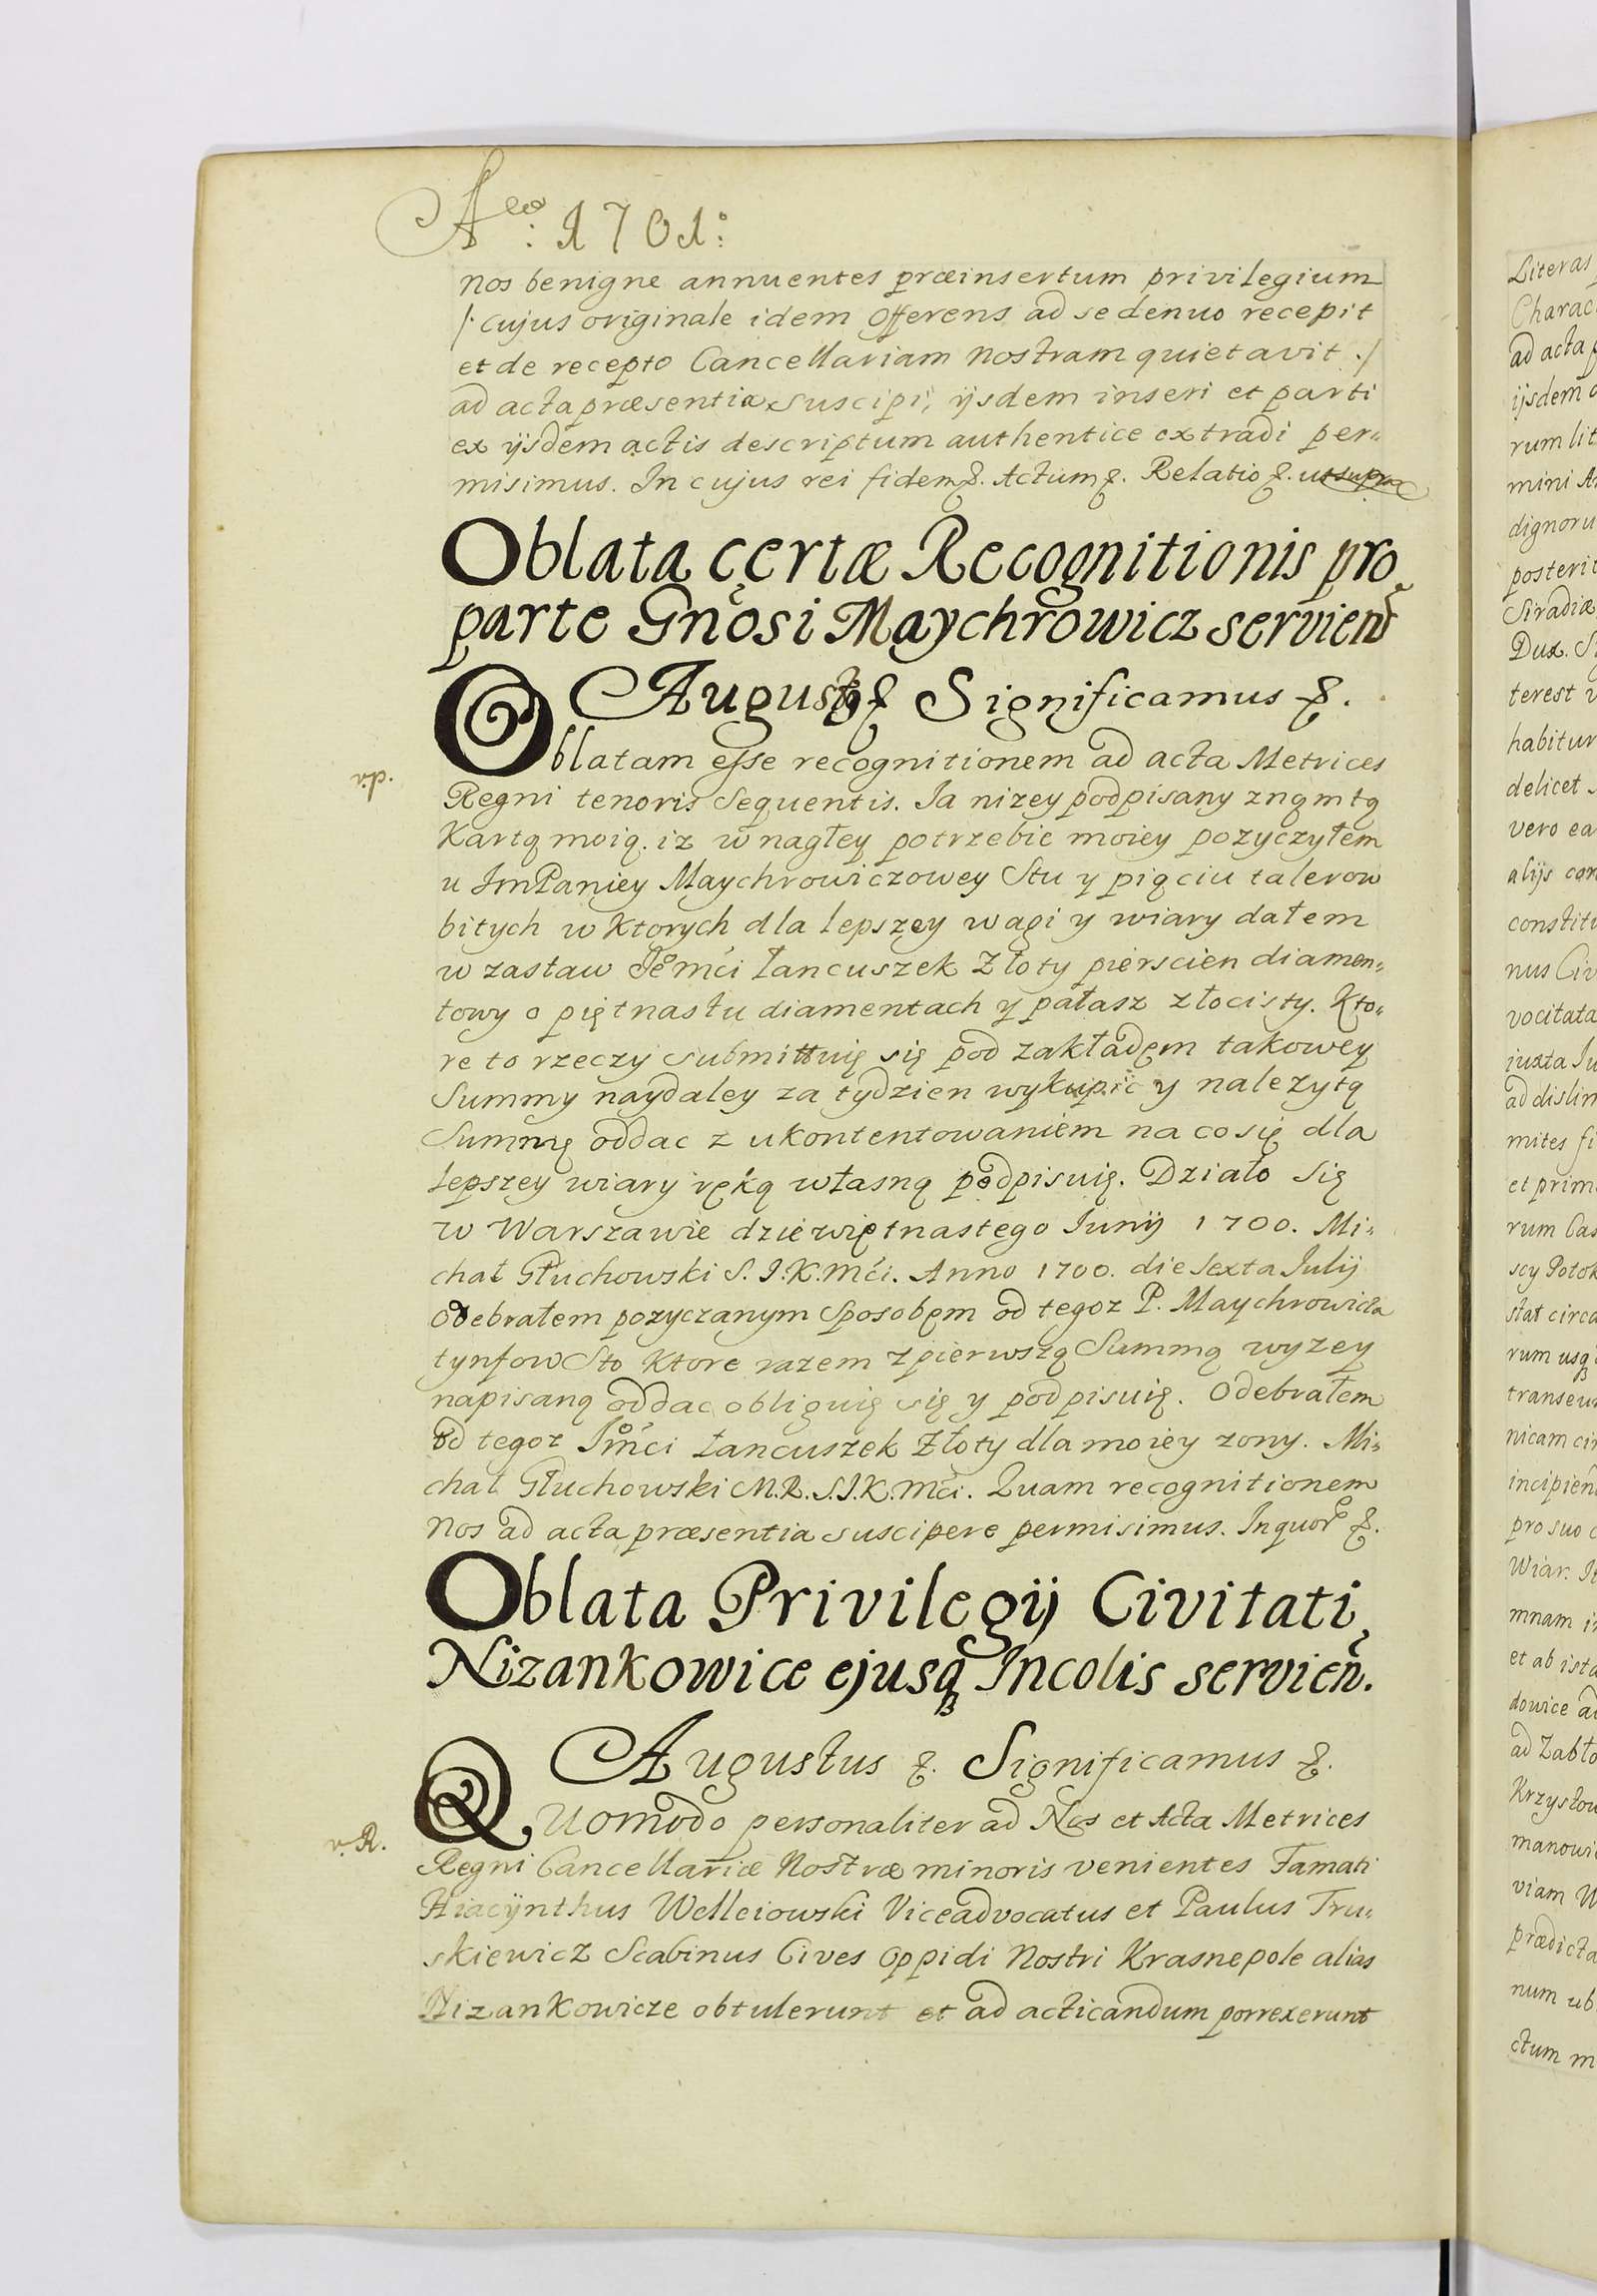 Aео: 1701:
nos benigne annuentes præinsertum privilegium
/: cujus originale idem Offerens ad se denuo recepit
et de recepto Cancellariam Nostram quietavit :/
ad acta præsentia suscipi, ijsdem inseri et parti
ex ijsdem actis descriptum authentice extradi per„
misimus. In cujus rei fidem &. Actum &. Relatio &. ut supra
Oblata certæ Recognitionis pro
parte Gnosi Maychrowicz servien
Augustus & Significamus &.
Oblatam esse recognitionem ad acta Metrices
Regni tenoris sequentis. Ja nizey podpisany znąm tą
Kartą moią. iz w nagłey potrzebie moiey pozyczyłem
u JmPaniey Maychrowiczowey Stu y pięciu talerow
bitych w Ktorych dla lepszey wagi y wiary dałem
w zastaw Jeomći Łancuszek Złoty pierscien diamen„
towy o piętnastu diamentach y pałasz złocisty. Kto„
re to rzeczy submittuię się pod zakładem takowey
Summy naydaley za tydzien wykupić y nalezytą
Summę oddac z ukontentowaniem na co się dla
lepszey wiary ręką własną podpisuię. Działo się
w Warszawie dziewiętnastego Iunij 1700. Mi„
chał Głuchowski S. J.K.Mći. Anno 1700. die sexta Julij
Odebrałem pozyczanym sposobem od tegoz P. Maychrowicza
tynfow Sto Ktore razem z pierwszą Summą wyzey
napisaną oddac obliguię się y podpisuię. Odebrałem
od tegoz Jmći Łancuszek Złoty dla moiey zony. Mi„
chał Głuchowski M.R.S.J.K.Mći. Quam recognitionem
Nos ad acta præsentia suscipere permisimus. In quor &.
Oblata Privilegij Civitati
Nizankowice ejusq Incolis servien.
Augustus &. Significamus &.
v. R.
Quomodo personaliter ad Nos et Acta Metrices
Regni Cancellariæ Nostræ minoris venientes Famati
Hiacÿnthus Welleiowski Viceadvocatus et Paulus Tru„
skiewicz Scabinus Cives Oppidi Nostri Krasnepole alias
Nizankowicze obtulerunt et ad acticandum porrexerunt
Literas
Charac
ad acta
ijsdem
rum lit
mini A
dignoru
posterit
Siradiæ
Dux. S
terest v
habitur
delicet
vero ea
alijs con
constitu
nus Civ
vocitata
iuxta Ju
ad dislim
mites fi
et prim
rum Cas
scy Potok
stat circa
rum usq
transeu
nicam cir
incipien
pro suo
Wiar. It
mnam i
et ab ista
dowice ad
ad Zabło
Krzystow
manowi
viam W
prædicta
num ub
ctum m